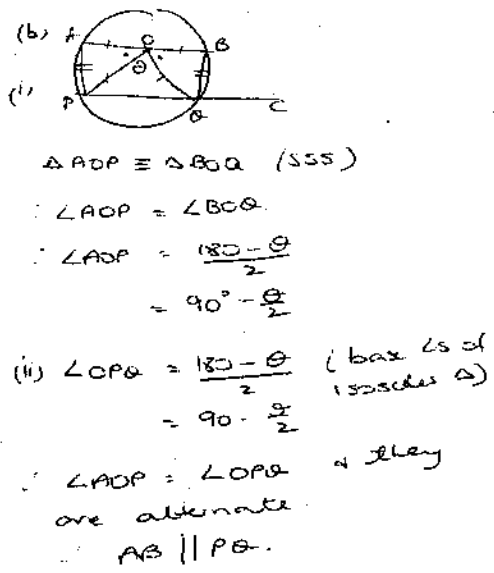 (b) A O B
θ
(i) P Q C
△AOP ≡ △BOQ (SSS)
∴ ∠AOP = ∠BOQ
∴ ∠AOP = (180 - θ)/2
= 90° - θ/2
(ii) ∠OPQ = (180 - θ)/2 (base ∠s of isosceles △)
= 90 - θ/2
∴ ∠AOP = ∠OPQ & they
are alternate
∴ AB || PQ.